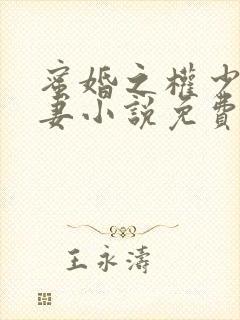 蜜婚之權少
妻小說免費
王永濤